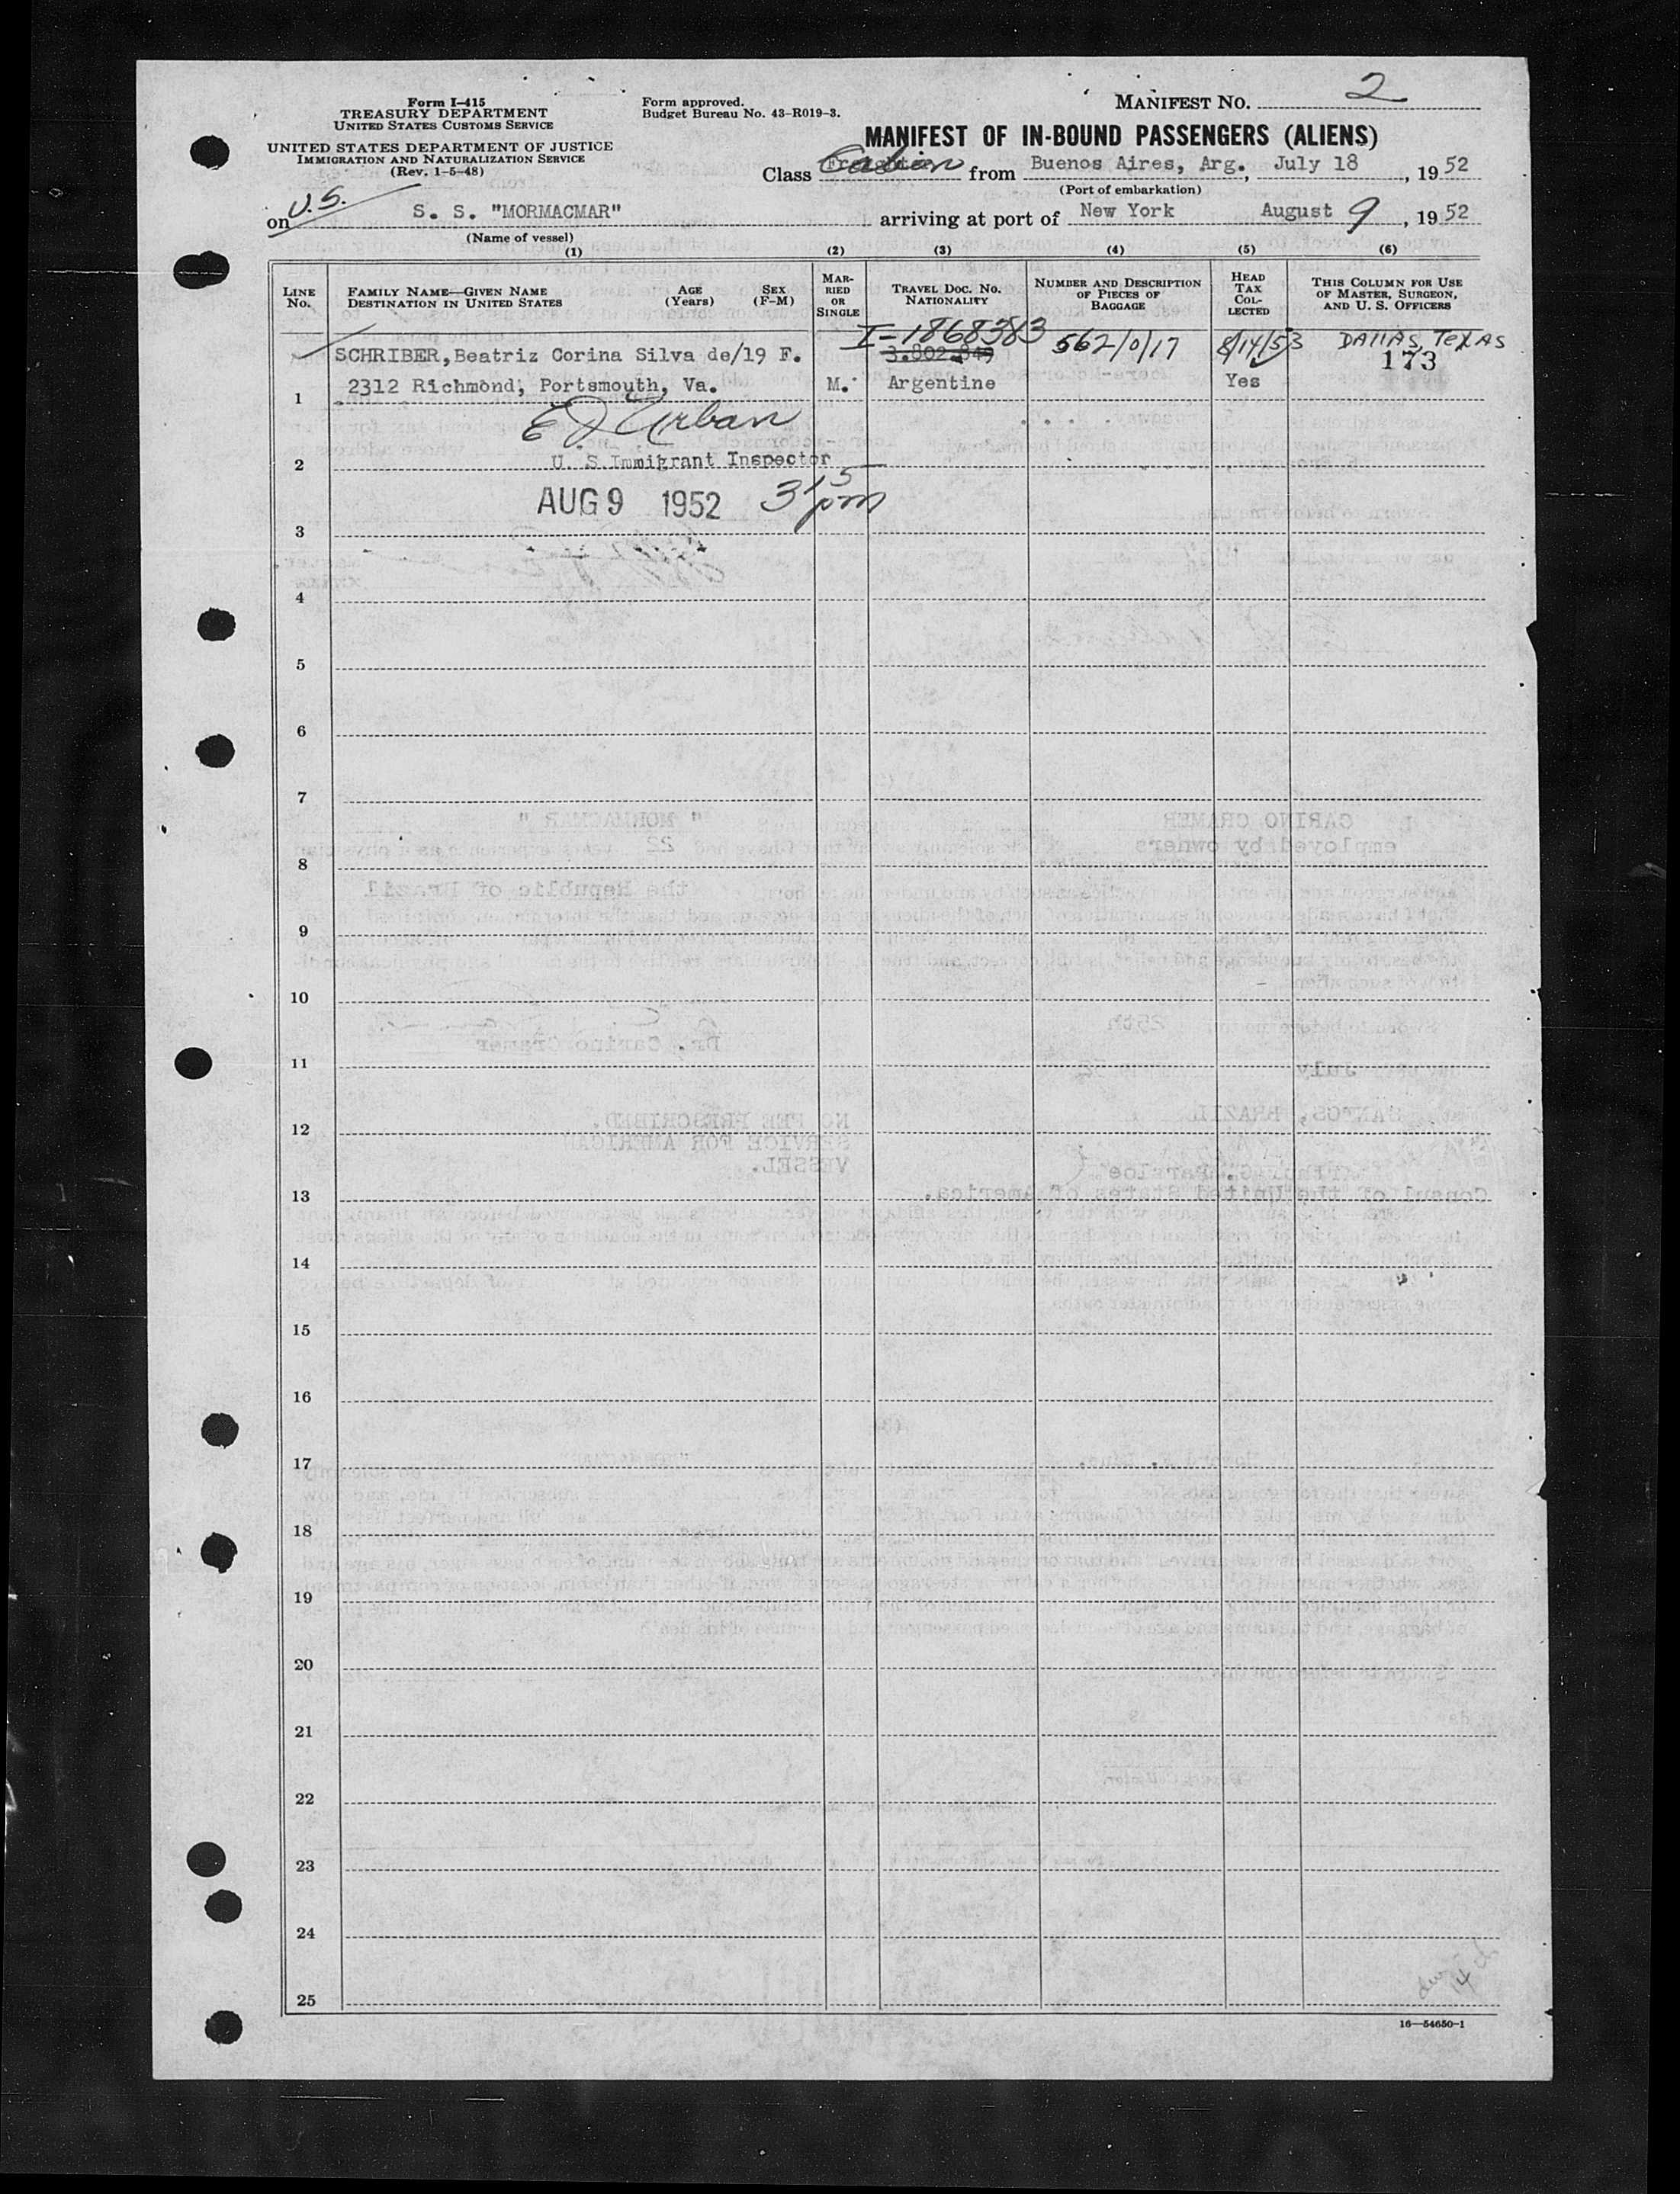 Form I-415
TREASURY DEPARTMENT
UNITED STATES CUSTOMS SERVICE
UNITED STATES DEPARTMENT OF JUSTICE
IMMIGRATION AND NATURALIZATION SERVICE
(Rev. 1-5-48)
Form approved.
Budget Bureau No. 43-R019-3.
MANIFEST NO. 2
MANIFEST OF IN-BOUND PASSENGERS (ALIENS)
Class Cabin from Buenos Aires, Arg., July 18, 1952
(Port of embarkation)
on U.S. S. S. "MORMACMAR" arriving at port of New York August 9, 1952
(Name of vessel)
(1) (2) (3) (4) (5) (6)
LINE NO.
FAMILY NAME—GIVEN NAME
DESTINATION IN UNITED STATES
AGE (Years)
SEX (F-M)
MARRIED OR SINGLE
TRAVEL DOC. NO.
NATIONALITY
NUMBER AND DESCRIPTION OF PIECES OF BAGGAGE
HEAD TAX COLLECTED
THIS COLUMN FOR USE OF MASTER, SURGEON, AND U. S. OFFICERS
I-1868383
SCHRIBER, Beatriz Corina Silva de/19 F. 3.802.849 562/0/17 8/14/53 DALLAS, TEXAS
173
2312 Richmond, Portsmouth, Va. M. Argentine Yes
1
E J Urban
2 U. S. Immigrant Inspector
AUG 9 1952 3 15 pm
3
4
5
6
7
8
9
10
11
12
13
14
15
16
17
18
19
20
21
22
23
24
25
16—54650-1